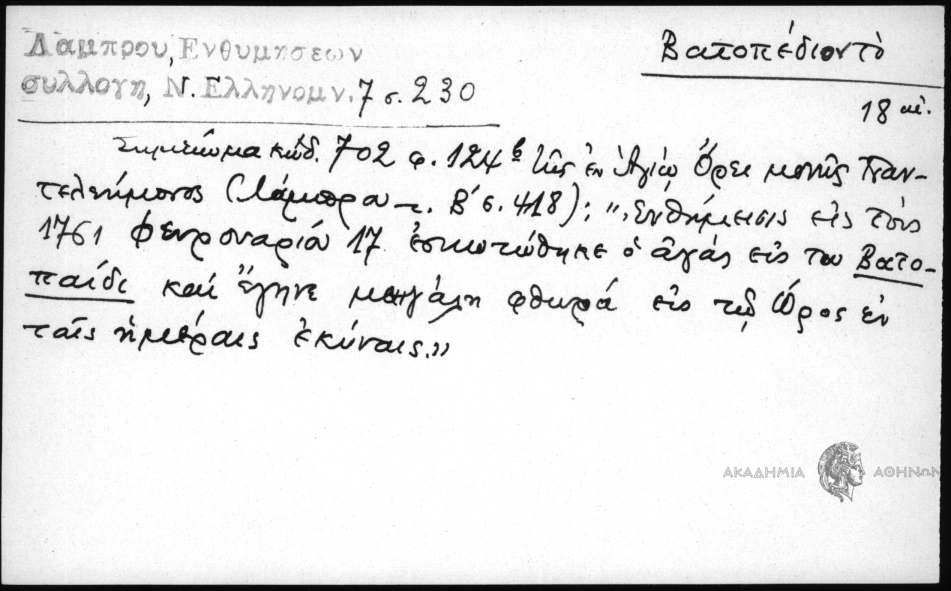 Λάμπρου, Ενθυμησεων
συλλογη, Ν. Ελληνομν. 7 σ. 230
Βατοπέδιον τὸ
18 αἰ.
Σημείωμα κώδ. 702 φ. 124β τῆς ἐν Ἁγίῳ Ὄρει μονῆς Παν-
τελεήμονος (Λάμπρου τ. Β' σ. 418): "Ενθήμεισις εἰς τοὺς
1761 φευρουαρίου 17 ἐσκωτώθηκε ὁ ἀγάς εἰς του Βατο-
παίδι καὶ ἔγηνε μεγάλη φθωρά εἰς τῶ Ὦρος ἐν
ταῖς ἡμέραις ἐκύναις."
ΑΚΑΔΗΜΙΑ ΑΘΗΝΩΝ